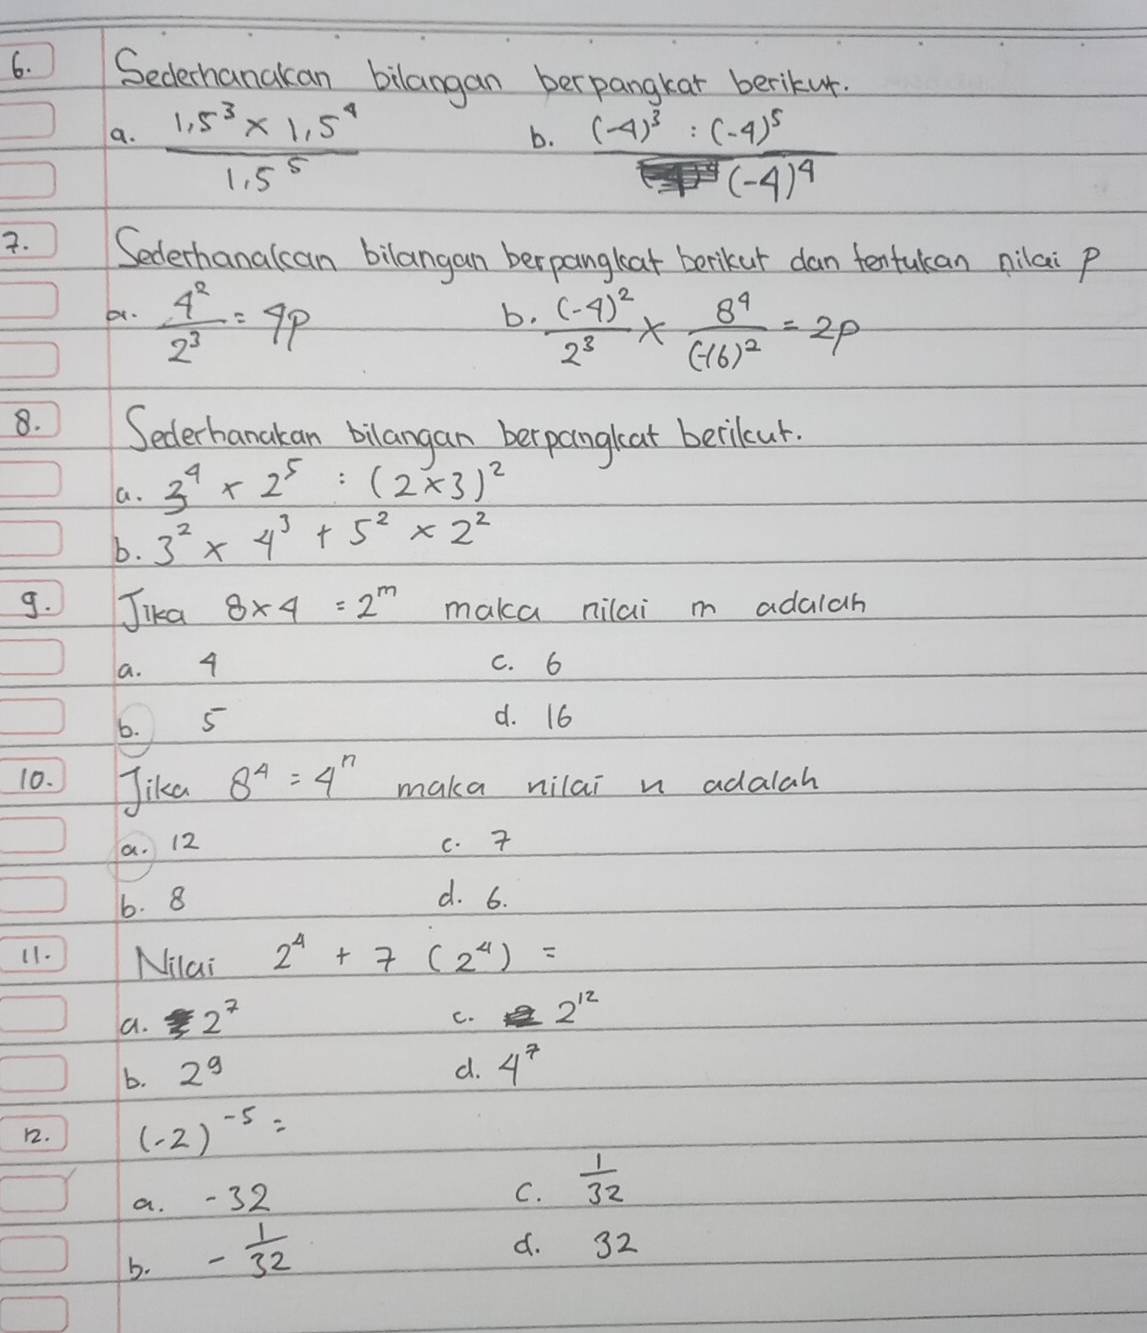 6. Sederhanakan bilangan berpangkat berikut.
a. (1,5³ × 1,5⁴) / 1,5⁵ b. ((-4)³ : (-4)⁵) / (-4)⁴
7. Sederhanakan bilangan berpangkat berikut dan tentukan nilai p
a. 4² / 2³ = 4p b. (-4)² / 2³ × 8⁴ / (-16)² = 2p
8. Sederhanakan bilangan berpangkat berikut.
a. 3⁴ × 2⁵ : (2×3)²
b. 3² × 4³ + 5² × 2²
9. Jika 8×4 = 2ᵐ maka nilai m adalah
a. 4 c. 6
b. 5 d. 16
10. Jika 8⁴ = 4ⁿ maka nilai n adalah
a. 12 c. 7
b. 8 d. 6.
11. Nilai 2⁴ + 7 (2⁴) =
a. 2⁷ c. 2¹²
b. 2⁹ d. 4⁷
12. (-2)⁻⁵ =
a. -32 c. 1/32
b. - 1/32 d. 32